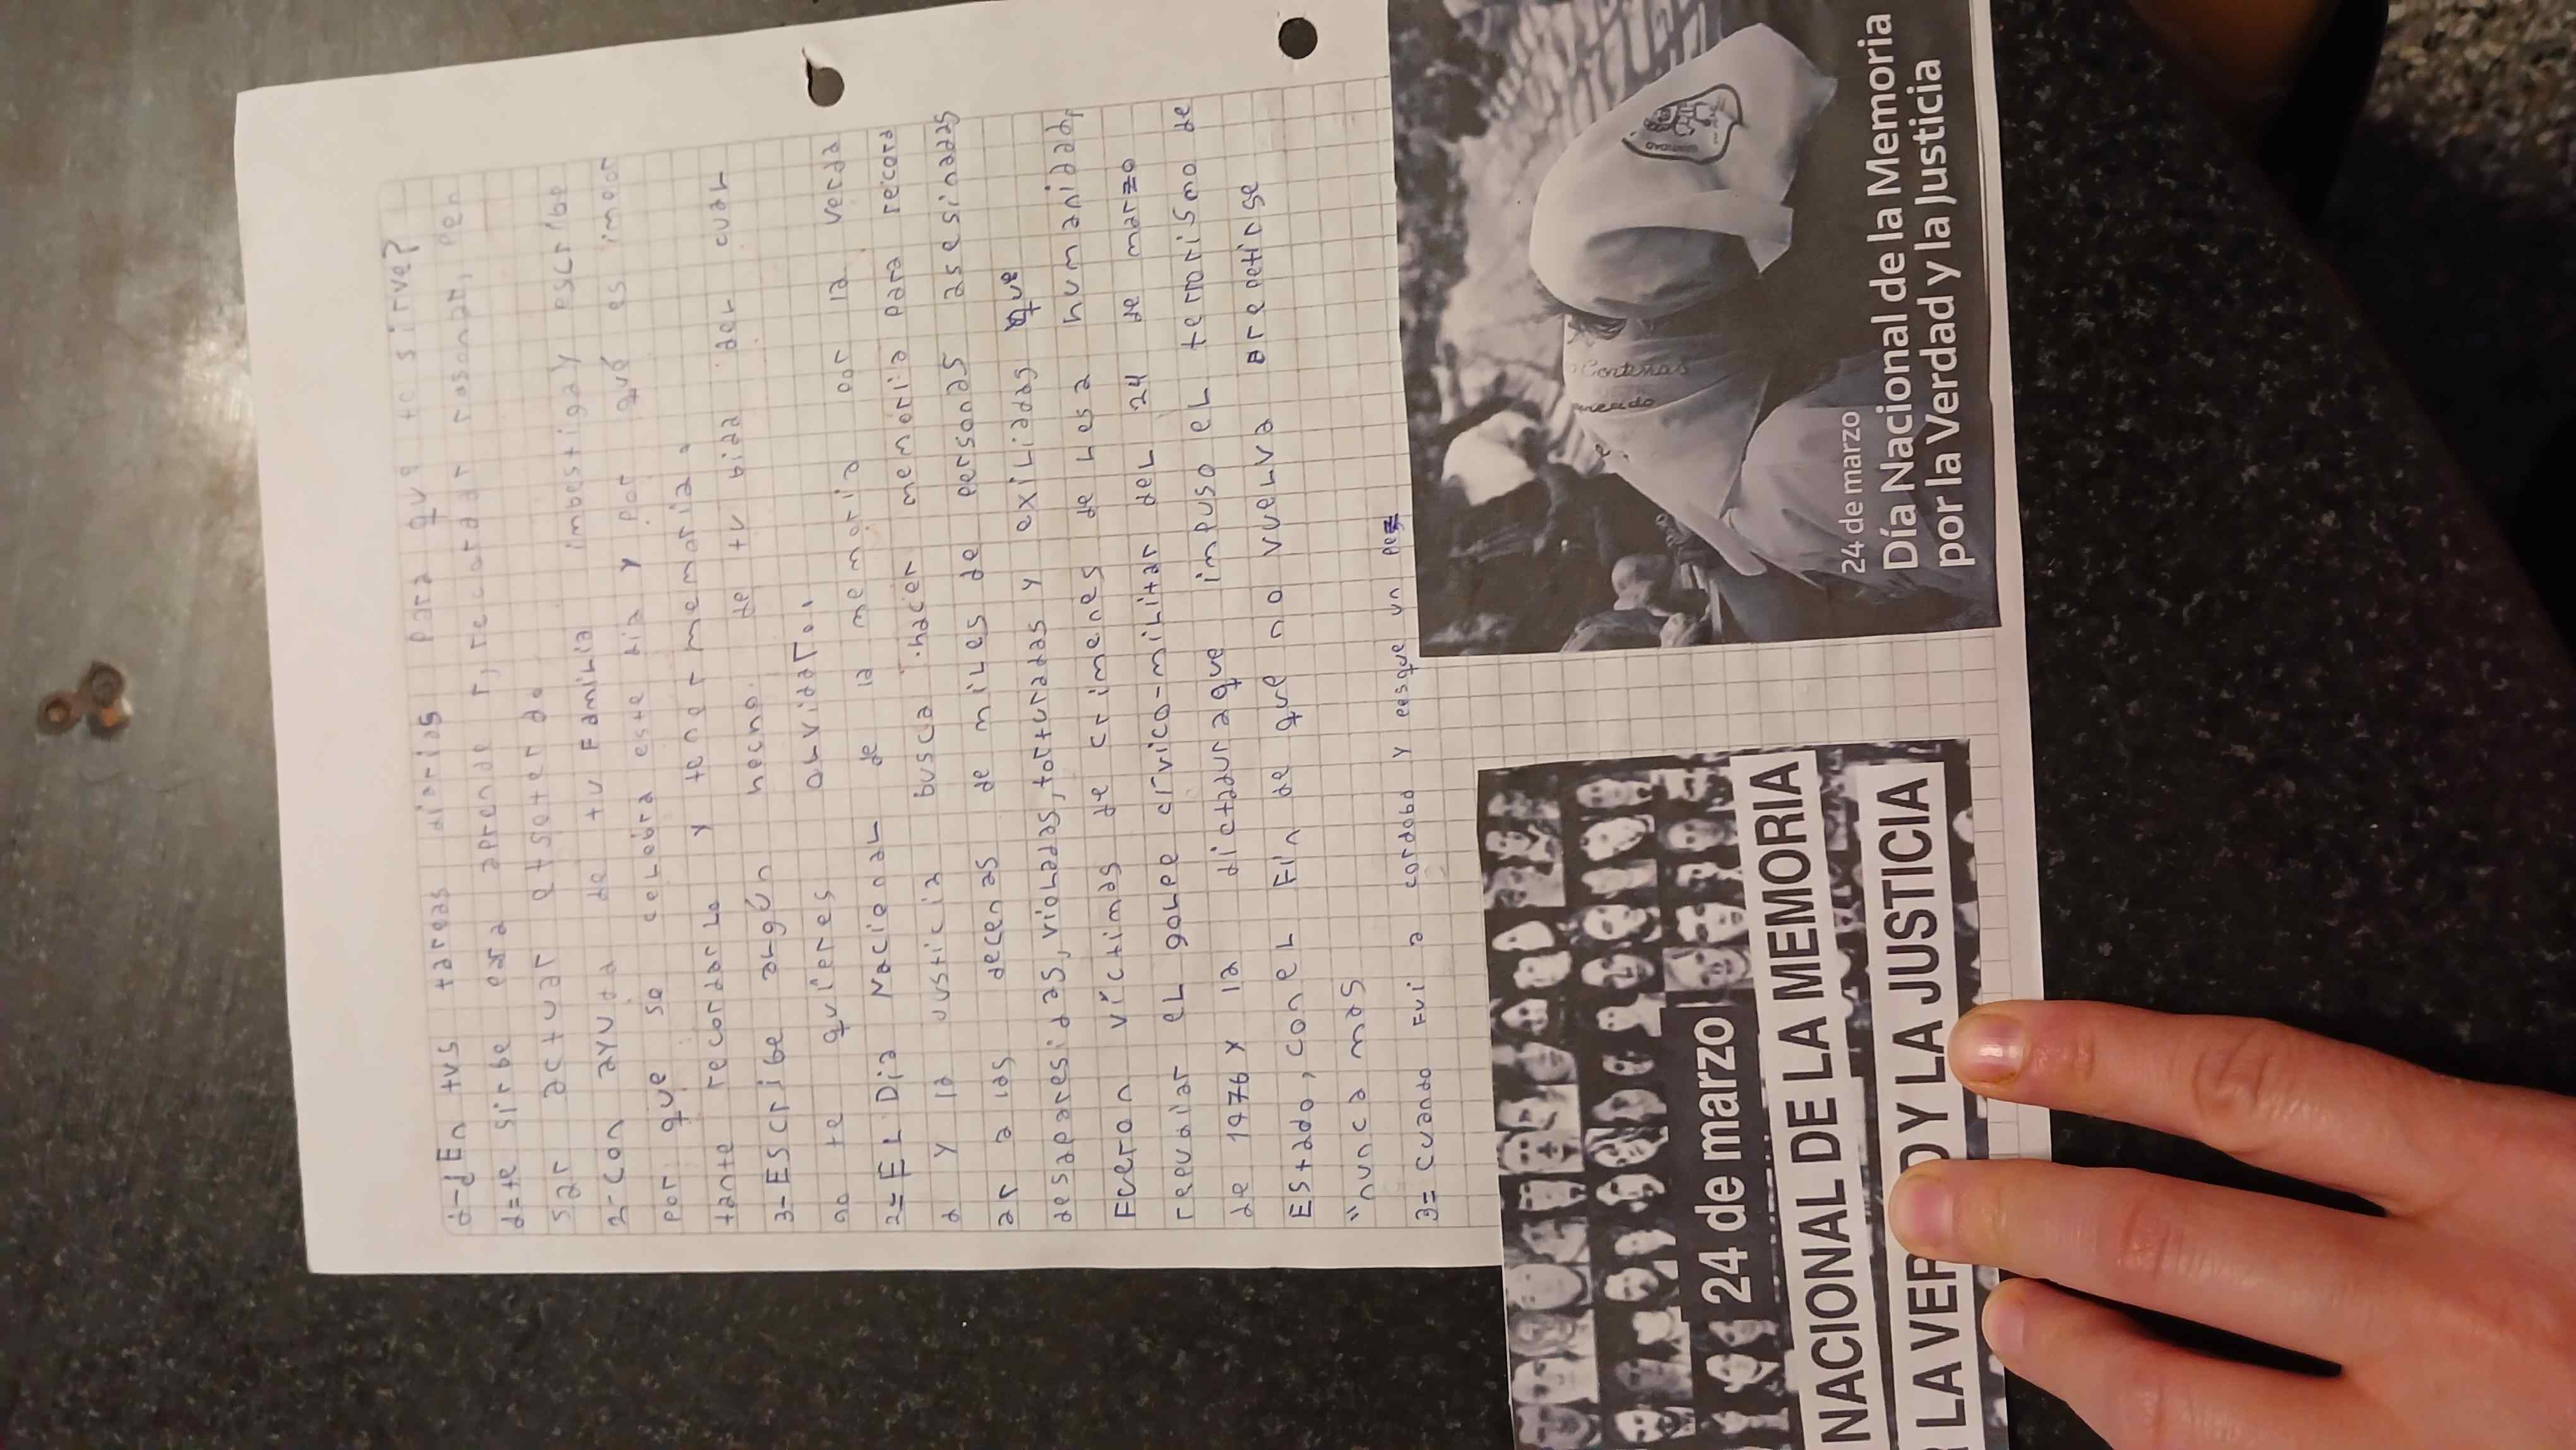 d-dEn tus tareas diarias para que te sirve?
d=te sirbe para aprende r, recordar rasonar, pen
sar actuar etseter a.
2-con ayuda de tu Familia imbestigay escribe
por que se celebra este dia y por qué es impor
tante recordarlo y tener memoria.
3-Escribe algún hecho de tu bida del cual
no te quieres olvidar.
2=El Dia Nacional de la memoria por la verda
d y la justicia busca hacer memoria para record
ar a las decenas de miles de personas asesinadas
desaparesidas, violadas, torturadas y exiliadas que
Fueron víctimas de crimenes de lesa humanidad,
repudiar el golpe civico-militar del 24 de marzo
de 1976 y la dictadura que impuso el terrorismo de
Estado, con el Fin de que no vuelva a repetirse
"nunca mas
3= cuando Fui a cordoba y pesque un pez
24 de marzo
NACIONAL DE LA MEMORIA
LA VER D Y LA JUSTICIA
24 de marzo
Día Nacional de la Memoria
por la Verdad y la Justicia